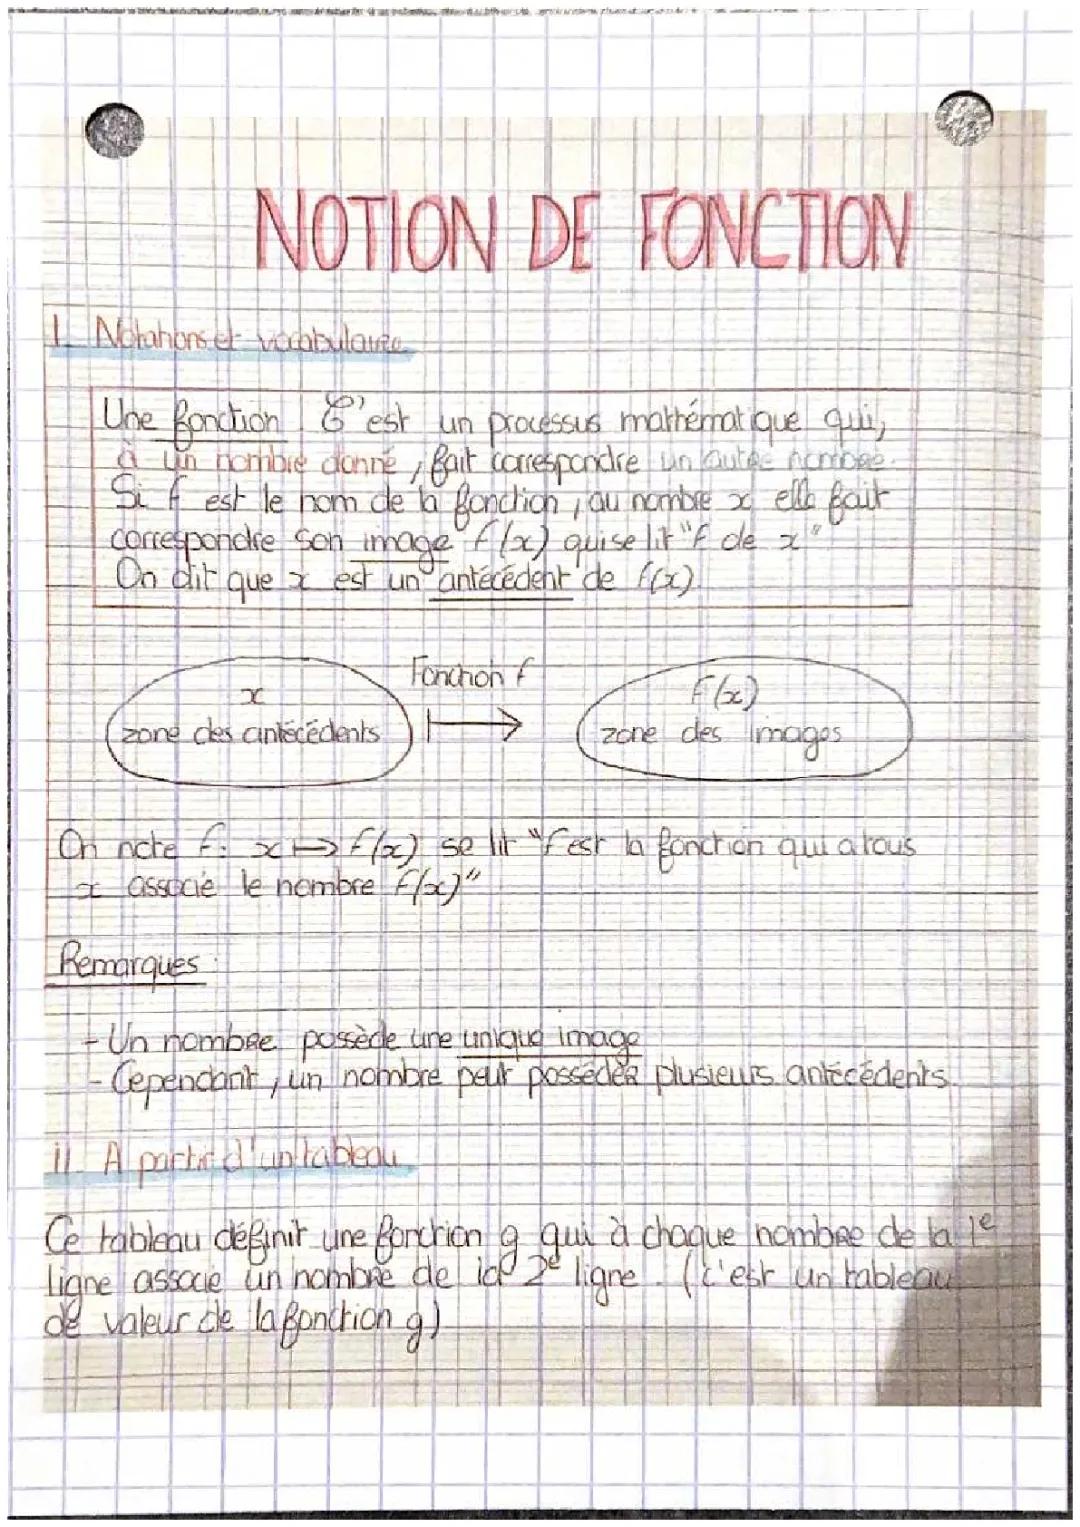 NOTION DE FONCTION
I. Notations et vocabulaire
Une fonction : C'est un processus mathématique qui,
à un nombre donné, fait correspondre un autre nombre.
Si f est le nom de la fonction, au nombre x elle fait
correspondre son image f(x) qui se lit "f de x"
On dit que x est un antécédent de f(x).
Fonction f
x
f(x)
zone des antécédents
zone des images
On note f: x ↦ f(x) se lit "f est la fonction qui a tous
x associe le nombre f(x)"
Remarques :
- Un nombre possède une unique image
- Cependant, un nombre peut posséder plusieurs antécédents.
II. A partir d'un tableau
Ce tableau définit une fonction g qui à chaque nombre de la 1e
ligne associe un nombre de la 2e ligne. (c'est un tableau
de valeur de la fonction g)